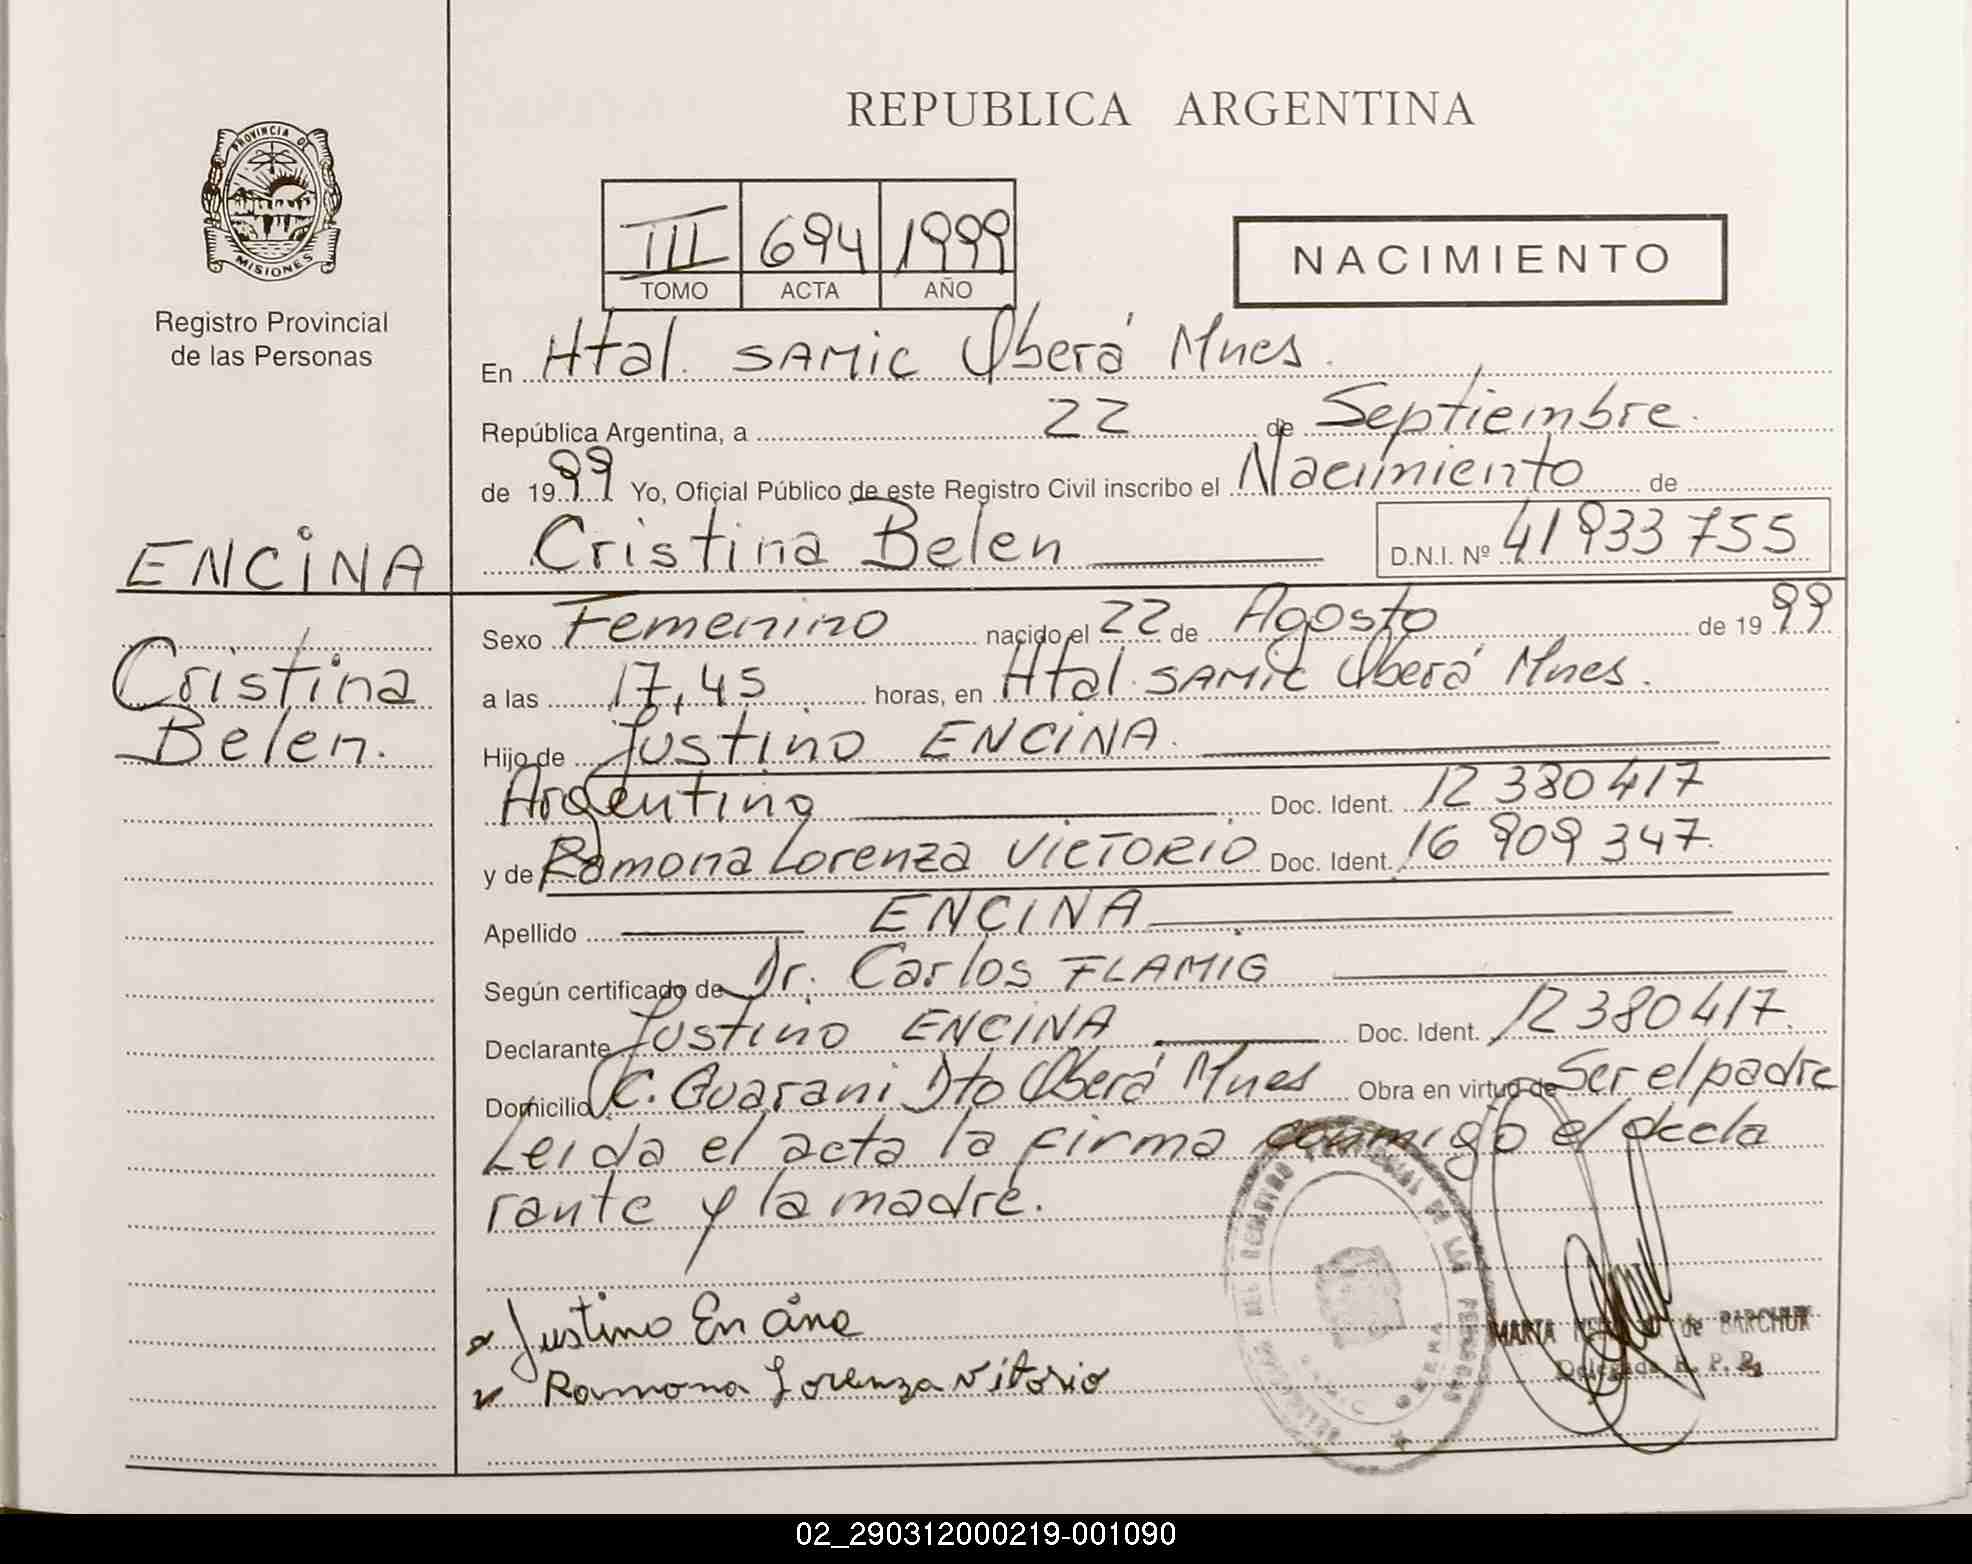 REPUBLICA ARGENTINA
PROVINCIA DE
MISIONES
Registro Provincial
de las Personas
III 694 1999
TOMO ACTA AÑO
NACIMIENTO
En Htal. SAMIC Oberá Mnes.
República Argentina, a 22 de Septiembre.
de 1999 Yo, Oficial Público de este Registro Civil inscribo el Nacimiento de
Cristina Belen D.N.I. Nº 41933755
ENCINA
Cristina
Belen.
Sexo Femenino nacido el 22 de Agosto de 1999
a las 17,45 horas, en Htal. SAMIC Oberá Mnes.
Hijo de Justino ENCINA.
Argentino Doc. Ident. 12 380 417
y de Ramona Lorenza VICTORIO Doc. Ident. 16 909 347.
Apellido ENCINA
Según certificado de Dr. Carlos FLAMIG
Declarante Justino ENCINA Doc. Ident. 12 380 417.
Domicilio C. Guarani Dto Oberá Mnes Obra en virtud de Ser el padre
Leida el acta la firma conmigo el decla
rante y la madre.
Justino Encina
Ramona Lorenza Vitorio
MARIA de BARCHUK
Delegada R. P. P.
02_290312000219-001090